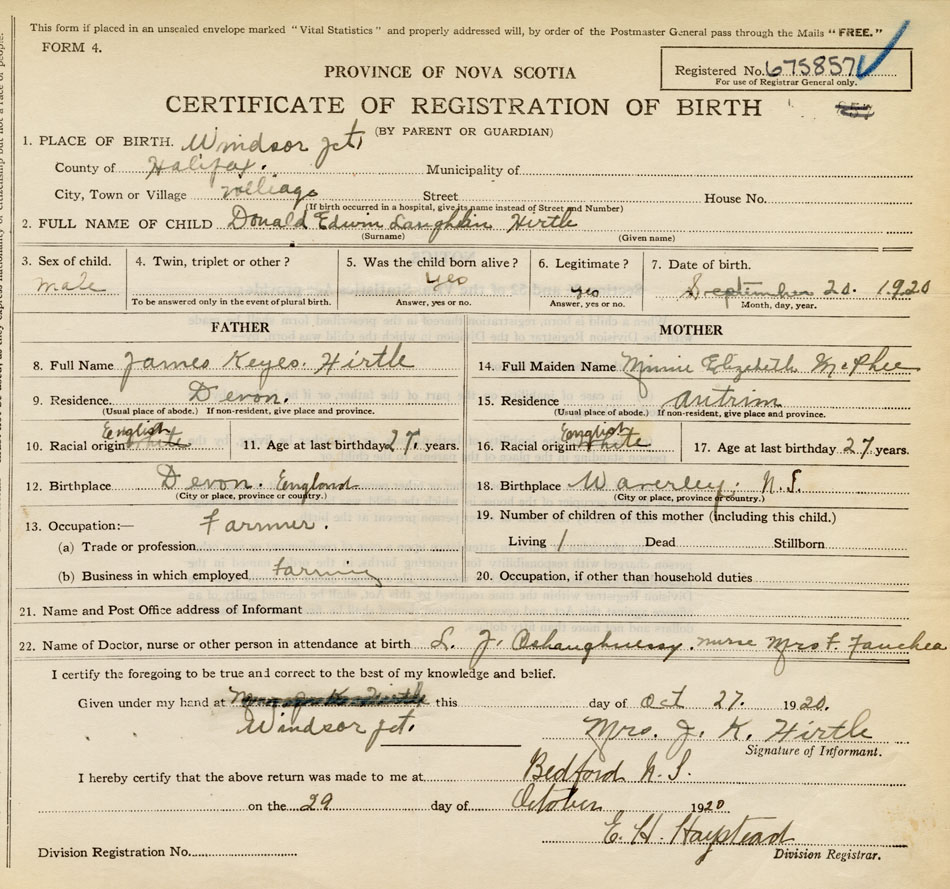 This form if placed in an unsealed envelope marked "Vital Statistics" and properly addressed will, by order of the Postmaster General pass through the Mails "FREE."
FORM 4.
Registered No. 675857
For use of Registrar General only.
PROVINCE OF NOVA SCOTIA
CERTIFICATE OF REGISTRATION OF BIRTH
(BY PARENT OR GUARDIAN)
1. PLACE OF BIRTH. Windsor Jct.
County of Halifax. Municipality of
City, Town or Village village Street House No.
(If birth occurred in a hospital, give its name instead of Street and Number)
2. FULL NAME OF CHILD Donald Edwin Laughlin Hirtle
(Surname) (Given name)
3. Sex of child. 4. Twin, triplet or other? 5. Was the child born alive? 6. Legitimate? 7. Date of birth.
male yes yes September 20. 1920
To be answered only in the event of plural birth. Answer, yes or no. Answer, yes or no. Month, day, year.
FATHER MOTHER
8. Full Name James Keyes. Hirtle 14. Full Maiden Name Minnie Elizabeth McPhee
9. Residence. Devon. 15. Residence Antrim
(Usual place of abode.) If non-resident, give place and province. (Usual place of abode.) If non-resident, give place and province.
English English
10. Racial origin white 11. Age at last birthday 27. years. 16. Racial origin white 17. Age at last birthday 27. years.
12. Birthplace Devon. England 18. Birthplace Waverley. N.S.
(City or place, province or country.) (City or place, province or country.)
13. Occupation:— Farmer. 19. Number of children of this mother (including this child.)
(a) Trade or profession Living 1 Dead Stillborn
(b) Business in which employed farming 20. Occupation, if other than household duties
21. Name and Post Office address of Informant
22. Name of Doctor, nurse or other person in attendance at birth L. J. Oshaughnessy. nurse Mrs F. Fauchea
I certify the foregoing to be true and correct to the best of my knowledge and belief.
Given under my hand at Mrs J. K. Hirtle this day of Oct 27. 1920.
Windsor Jct. Mrs. J. K. Hirtle
Signature of Informant.
I hereby certify that the above return was made to me at Bedford N.S.
on the 29 day of October 1920
E. H. Haystead
Division Registration No. Division Registrar.